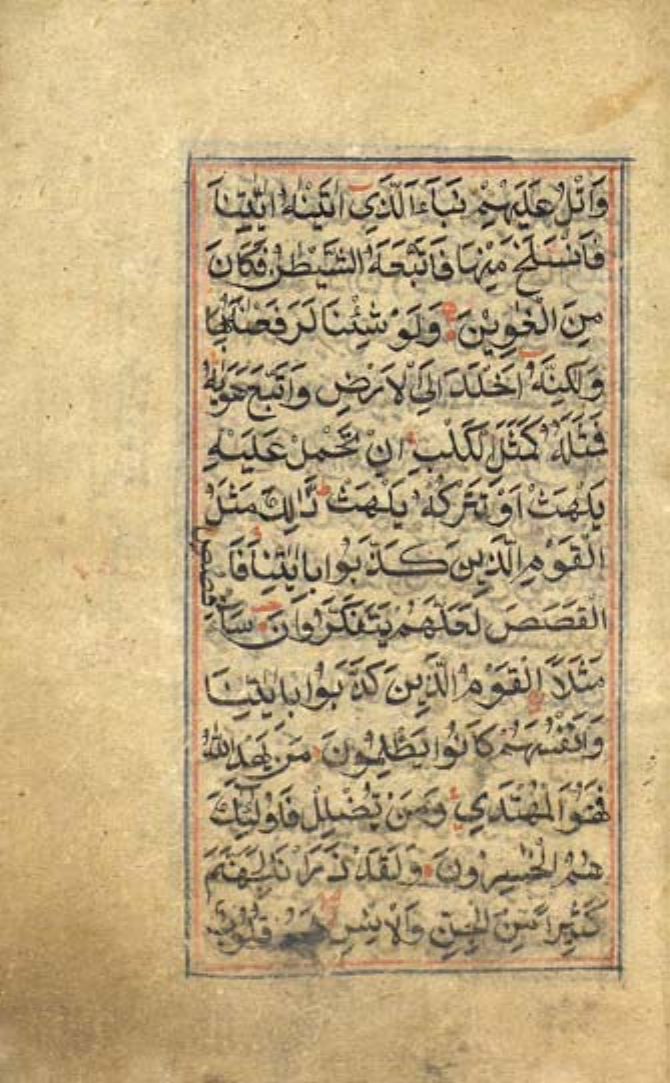 وَاتْلُ عَلَيْهِمْ نَبَاَ الَّذِي اتَيْنٰهُ ايٰتِنَا
فَانْسَلَخَ مِنْهَا فَاَتْبَعَهُ الشَّيْطٰنُ فَكَانَ
مِنَ الْغٰوِيْنَ وَلَوْ شِئْنَا لَرَفَعْنٰهُ بِهَا
وَلٰكِنَّهُ اَخْلَدَ اِلَى الْاَرْضِ وَاتَّبَعَ هَوٰيهُ
فَمَثَلُهُ كَمَثَلِ الْكَلْبِ اِنْ تَحْمِلْ عَلَيْهِ
يَلْهَثْ اَوْ تَتْرُكْهُ يَلْهَثْ ذٰلِكَ مَثَلُ
الْقَوْمِ الَّذِينَ كَذَّبُوا بِايٰتِنَا فَا
قصص
الْقَصَصَ لَعَلَّهُمْ يَتَفَكَّرُونَ سَاۤءَ
مَثَلًا الْقَوْمُ الَّذِينَ كَذَّبُوا بِايٰتِنَا
وَاَنْفُسَهُمْ كَانُوا يَظْلِمُونَ مَنْ يَهْدِ اللّٰهُ
فَهُوَ الْمُهْتَدِي وَمَنْ يُضْلِلْ فَاُولٰئِكَ
هُمُ الْخٰسِرُونَ وَلَقَدْ ذَرَاْنَا لِجَهَنَّمَ
كَثِيرًا مِنَ الْجِنِّ وَالْاِنْسِ لَهُمْ قُلُوبٌ